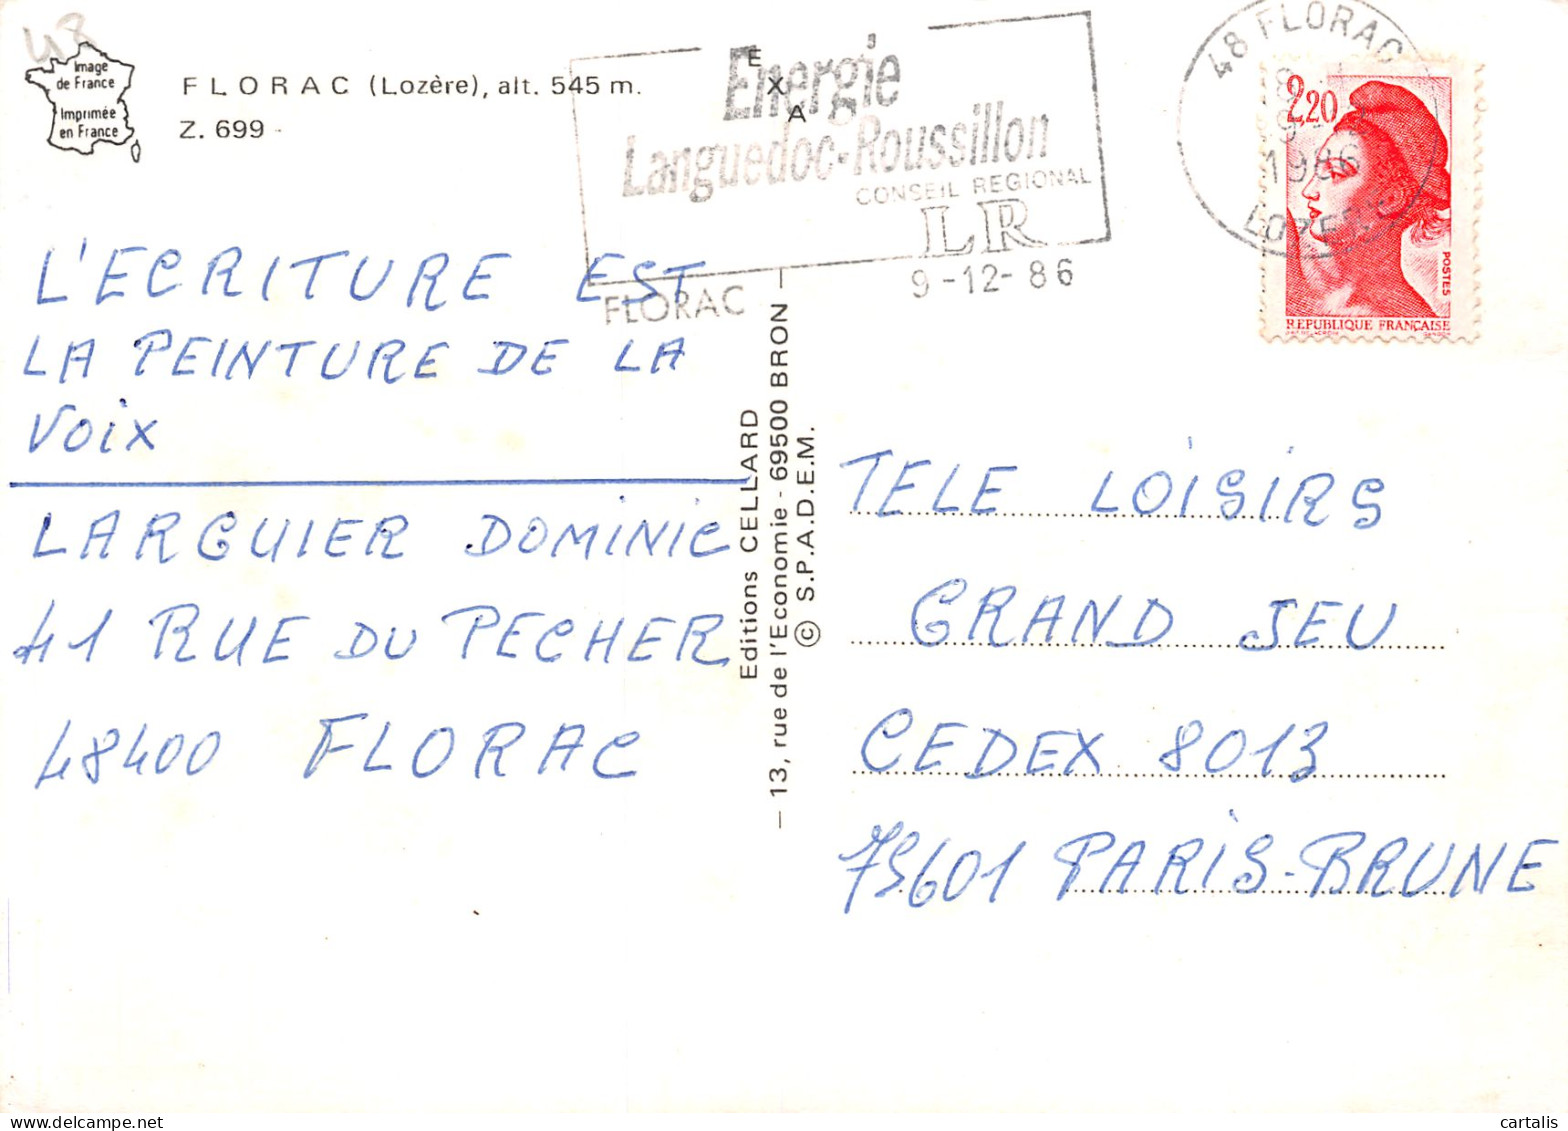 48
Image
de France
Imprimée
en France
FLORAC (Lozère), alt. 545 m.
Z. 699
EXA
Energie
Languedoc-Roussillon
CONSEIL REGIONAL
LR
9-12-86
FLORAC
48 FLORAC
1986
LOZERE
2,20
POSTES
REPUBLIQUE FRANÇAISE
L'ECRITURE EST
LA PEINTURE DE LA
VOIX
LARGUIER DOMINIC
41 RUE DU PECHER
48400 FLORAC
Editions CELLARD
— 13, rue de l'Economie - 69500 BRON —
© S.P.A.D.E.M.
TELE LOISIRS
GRAND JEU
CEDEX 8013
75601 PARIS-BRUNE
cartalis